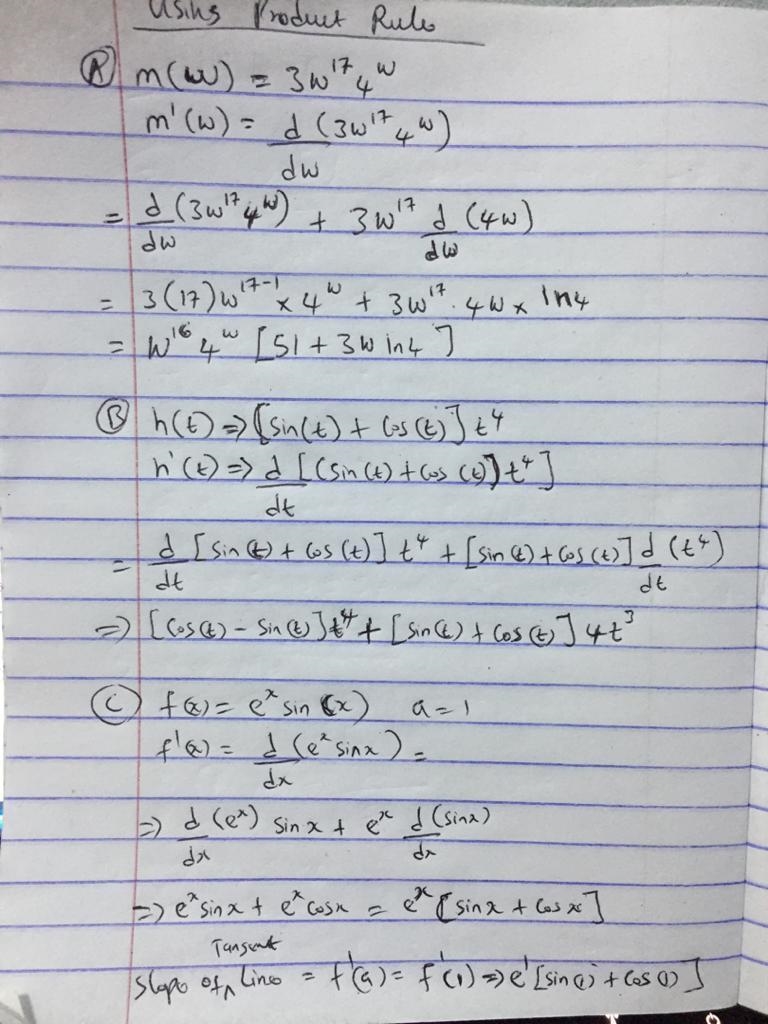 Using Product Rule
Ⓐ m(w) = 3w¹⁷4ʷ
m'(w) = d (3w¹⁷4ʷ)
dw
= d (3w¹⁷4ʷ) + 3w¹⁷ d (4w)
dw dw
= 3(17)w¹⁷⁻¹ x 4ʷ + 3w¹⁷. 4w x ln4
= w¹⁶4ʷ [51 + 3w in4]
Ⓑ h(t) ⇒ [sin(t) + cos(t)] t⁴
h'(t) ⇒ d [(sin(t) + cos(t)) t⁴]
dt
= d [sin(t) + cos(t)] t⁴ + [sin(t) + cos(t)] d (t⁴)
dt dt
⇒ [cos(t) - sin(t)] t⁴ + [sin(t) + cos(t)] 4t³
Ⓒ f(x) = eˣ sin(x) a = 1
f'(x) = d (eˣ sinx) =
dx
⇒ d (eˣ) sinx + eˣ d (sinx)
dx dx
⇒ eˣsinx + eˣcosx = eˣ [sinx + cosx]
Tangent
Slope of ∧ Line = f'(a) = f'(1) ⇒ e¹ [sin(1) + cos(1)]